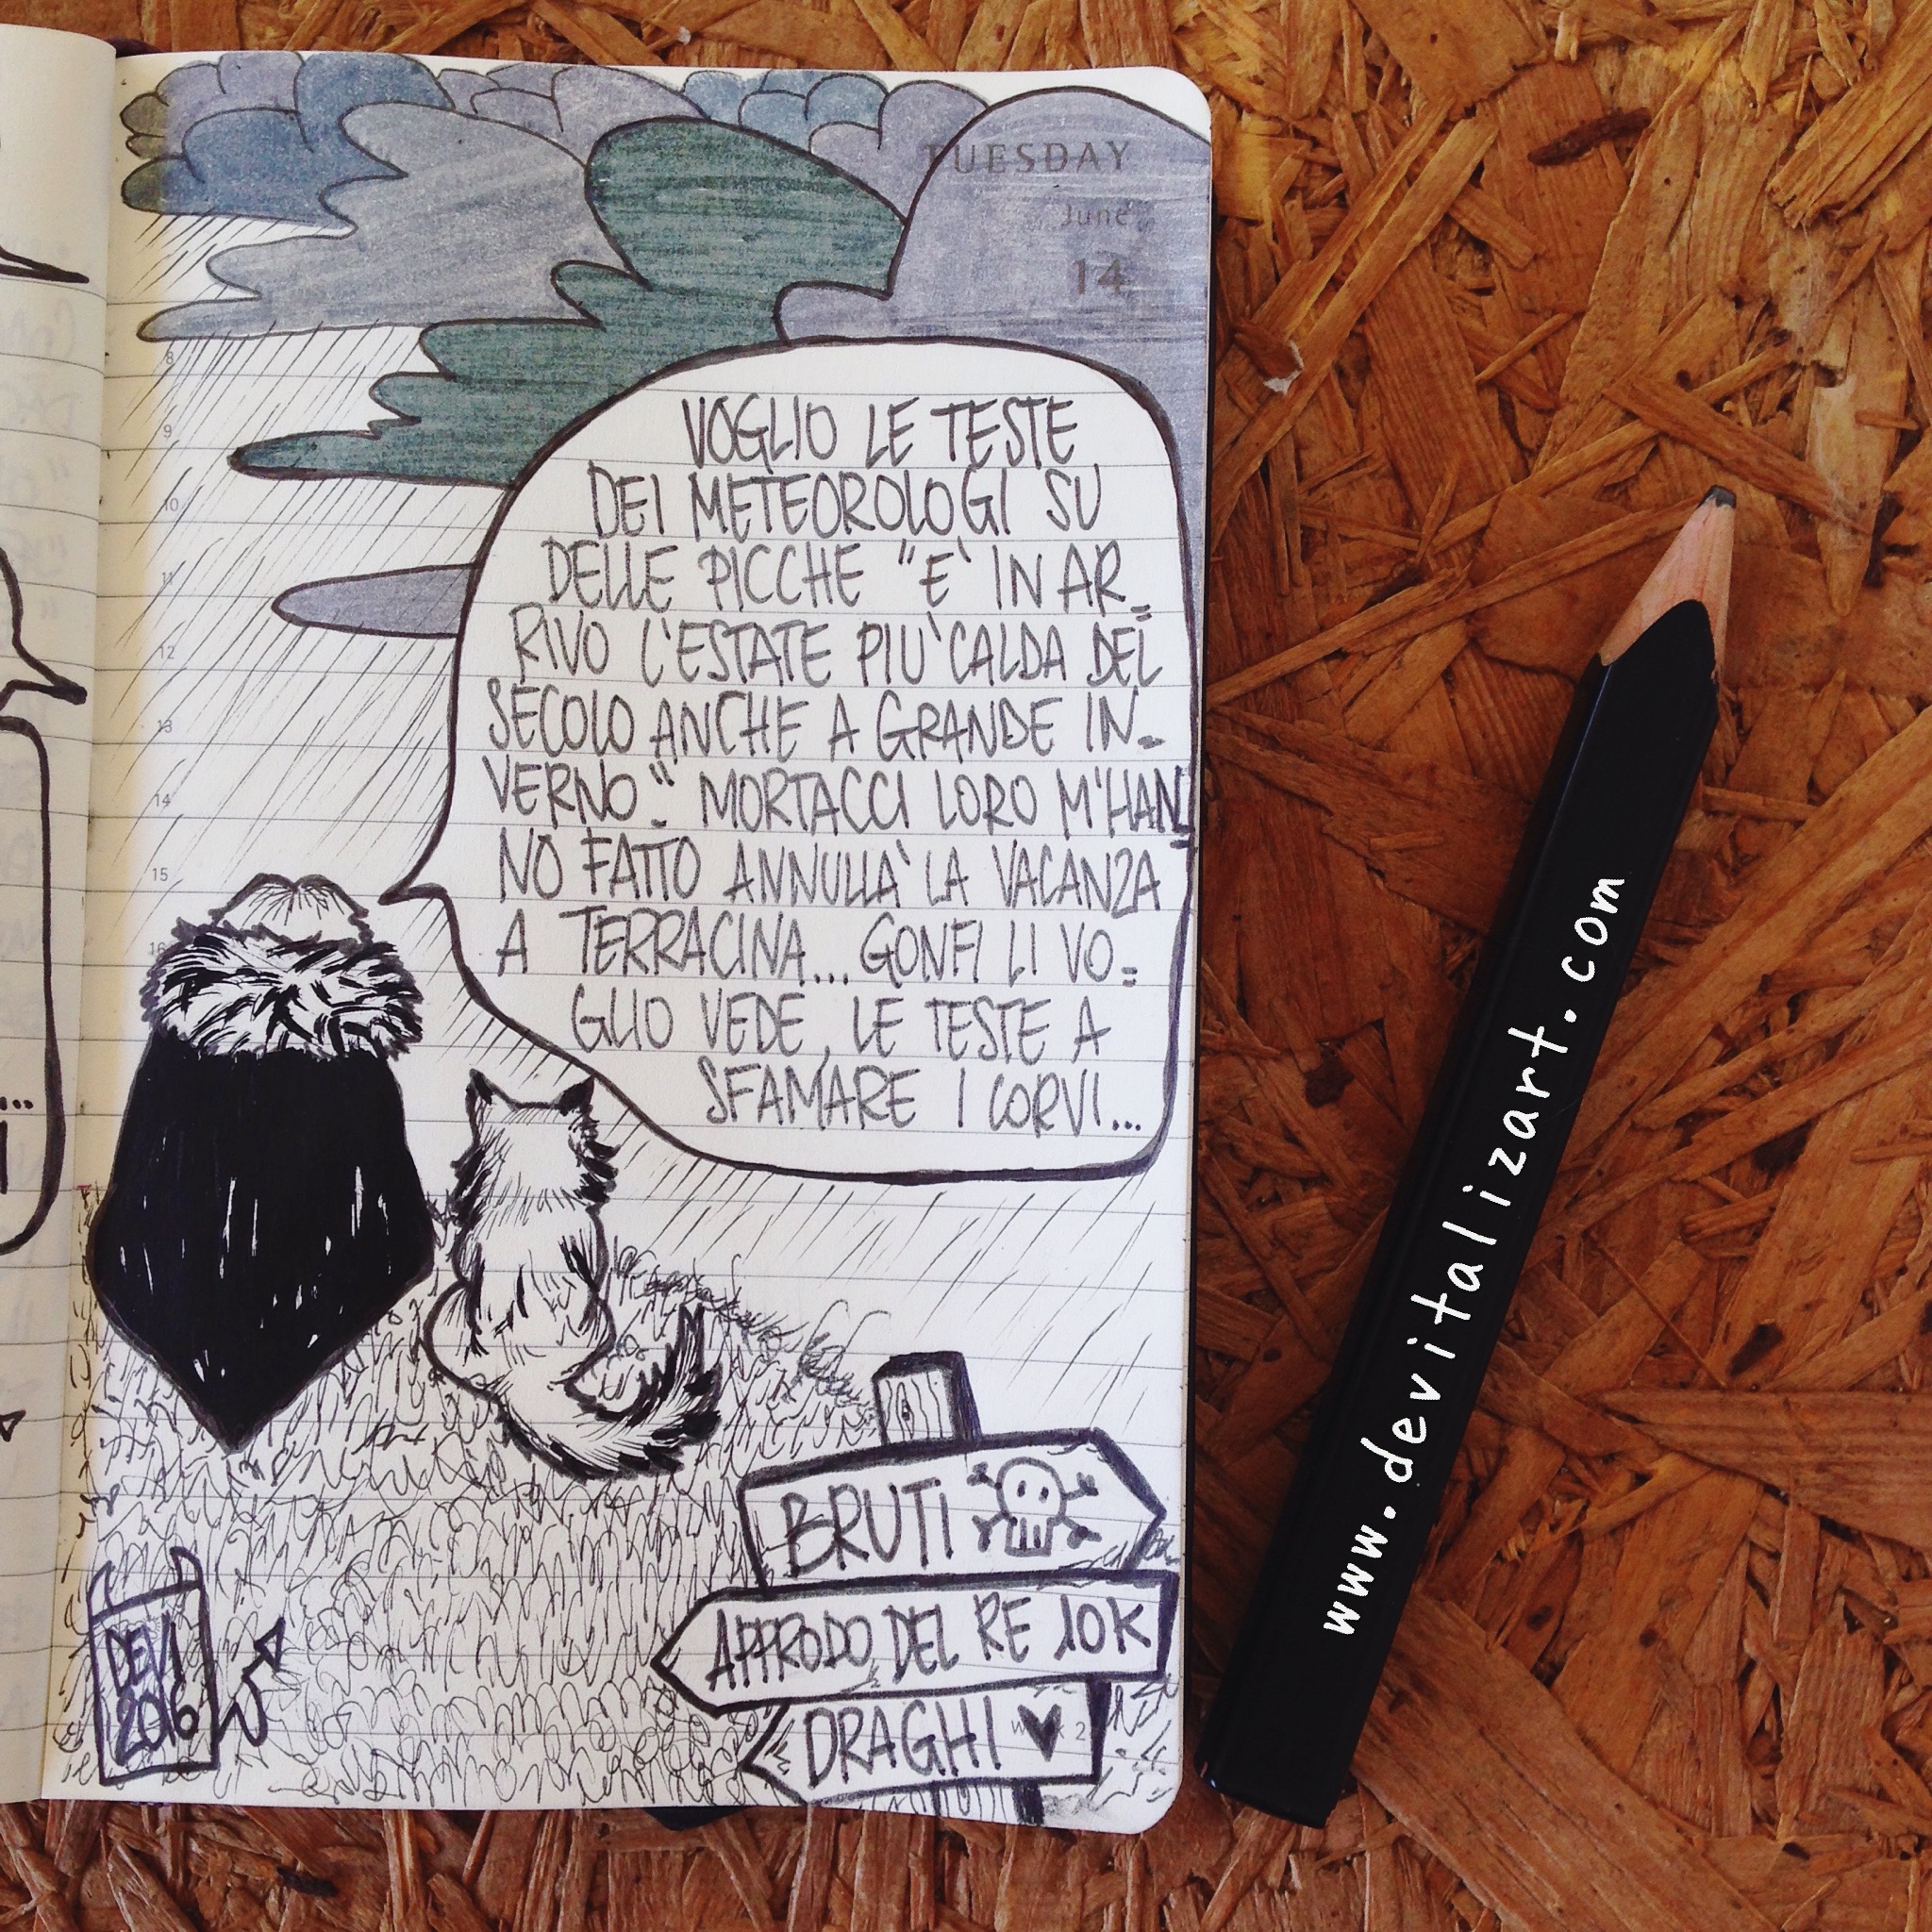 TUESDAY
June
14
VOGLIO LE TESTE
DEI METEOROLOGI SU
DELLE PICCHE "E' IN AR=
RIVO L'ESTATE PIU' CALDA DEL
SECOLO ANCHE A GRANDE IN=
VERNO." MORTACCI LORO M'HAN=
NO FATTO ANNULLA' LA VACANZA
A TERRACINA... GONFI LI VO=
GLIO VEDE, LE TESTE A
SFAMARE I CORVI...
8
9
10
11
12
13
14
15
16
BRUTI
APPRODO DEL RE 10K
DRAGHI
DEVI
2016
www.devitalizart.com